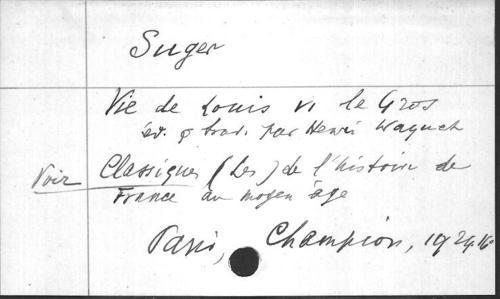 Suger
Vie de Louis VI le Gros
éd. & trad. par Henri Waquet
Voir Classiques (Les) de l'histoire de
France au moyen âge
Paris, Champion, 1929, 16°